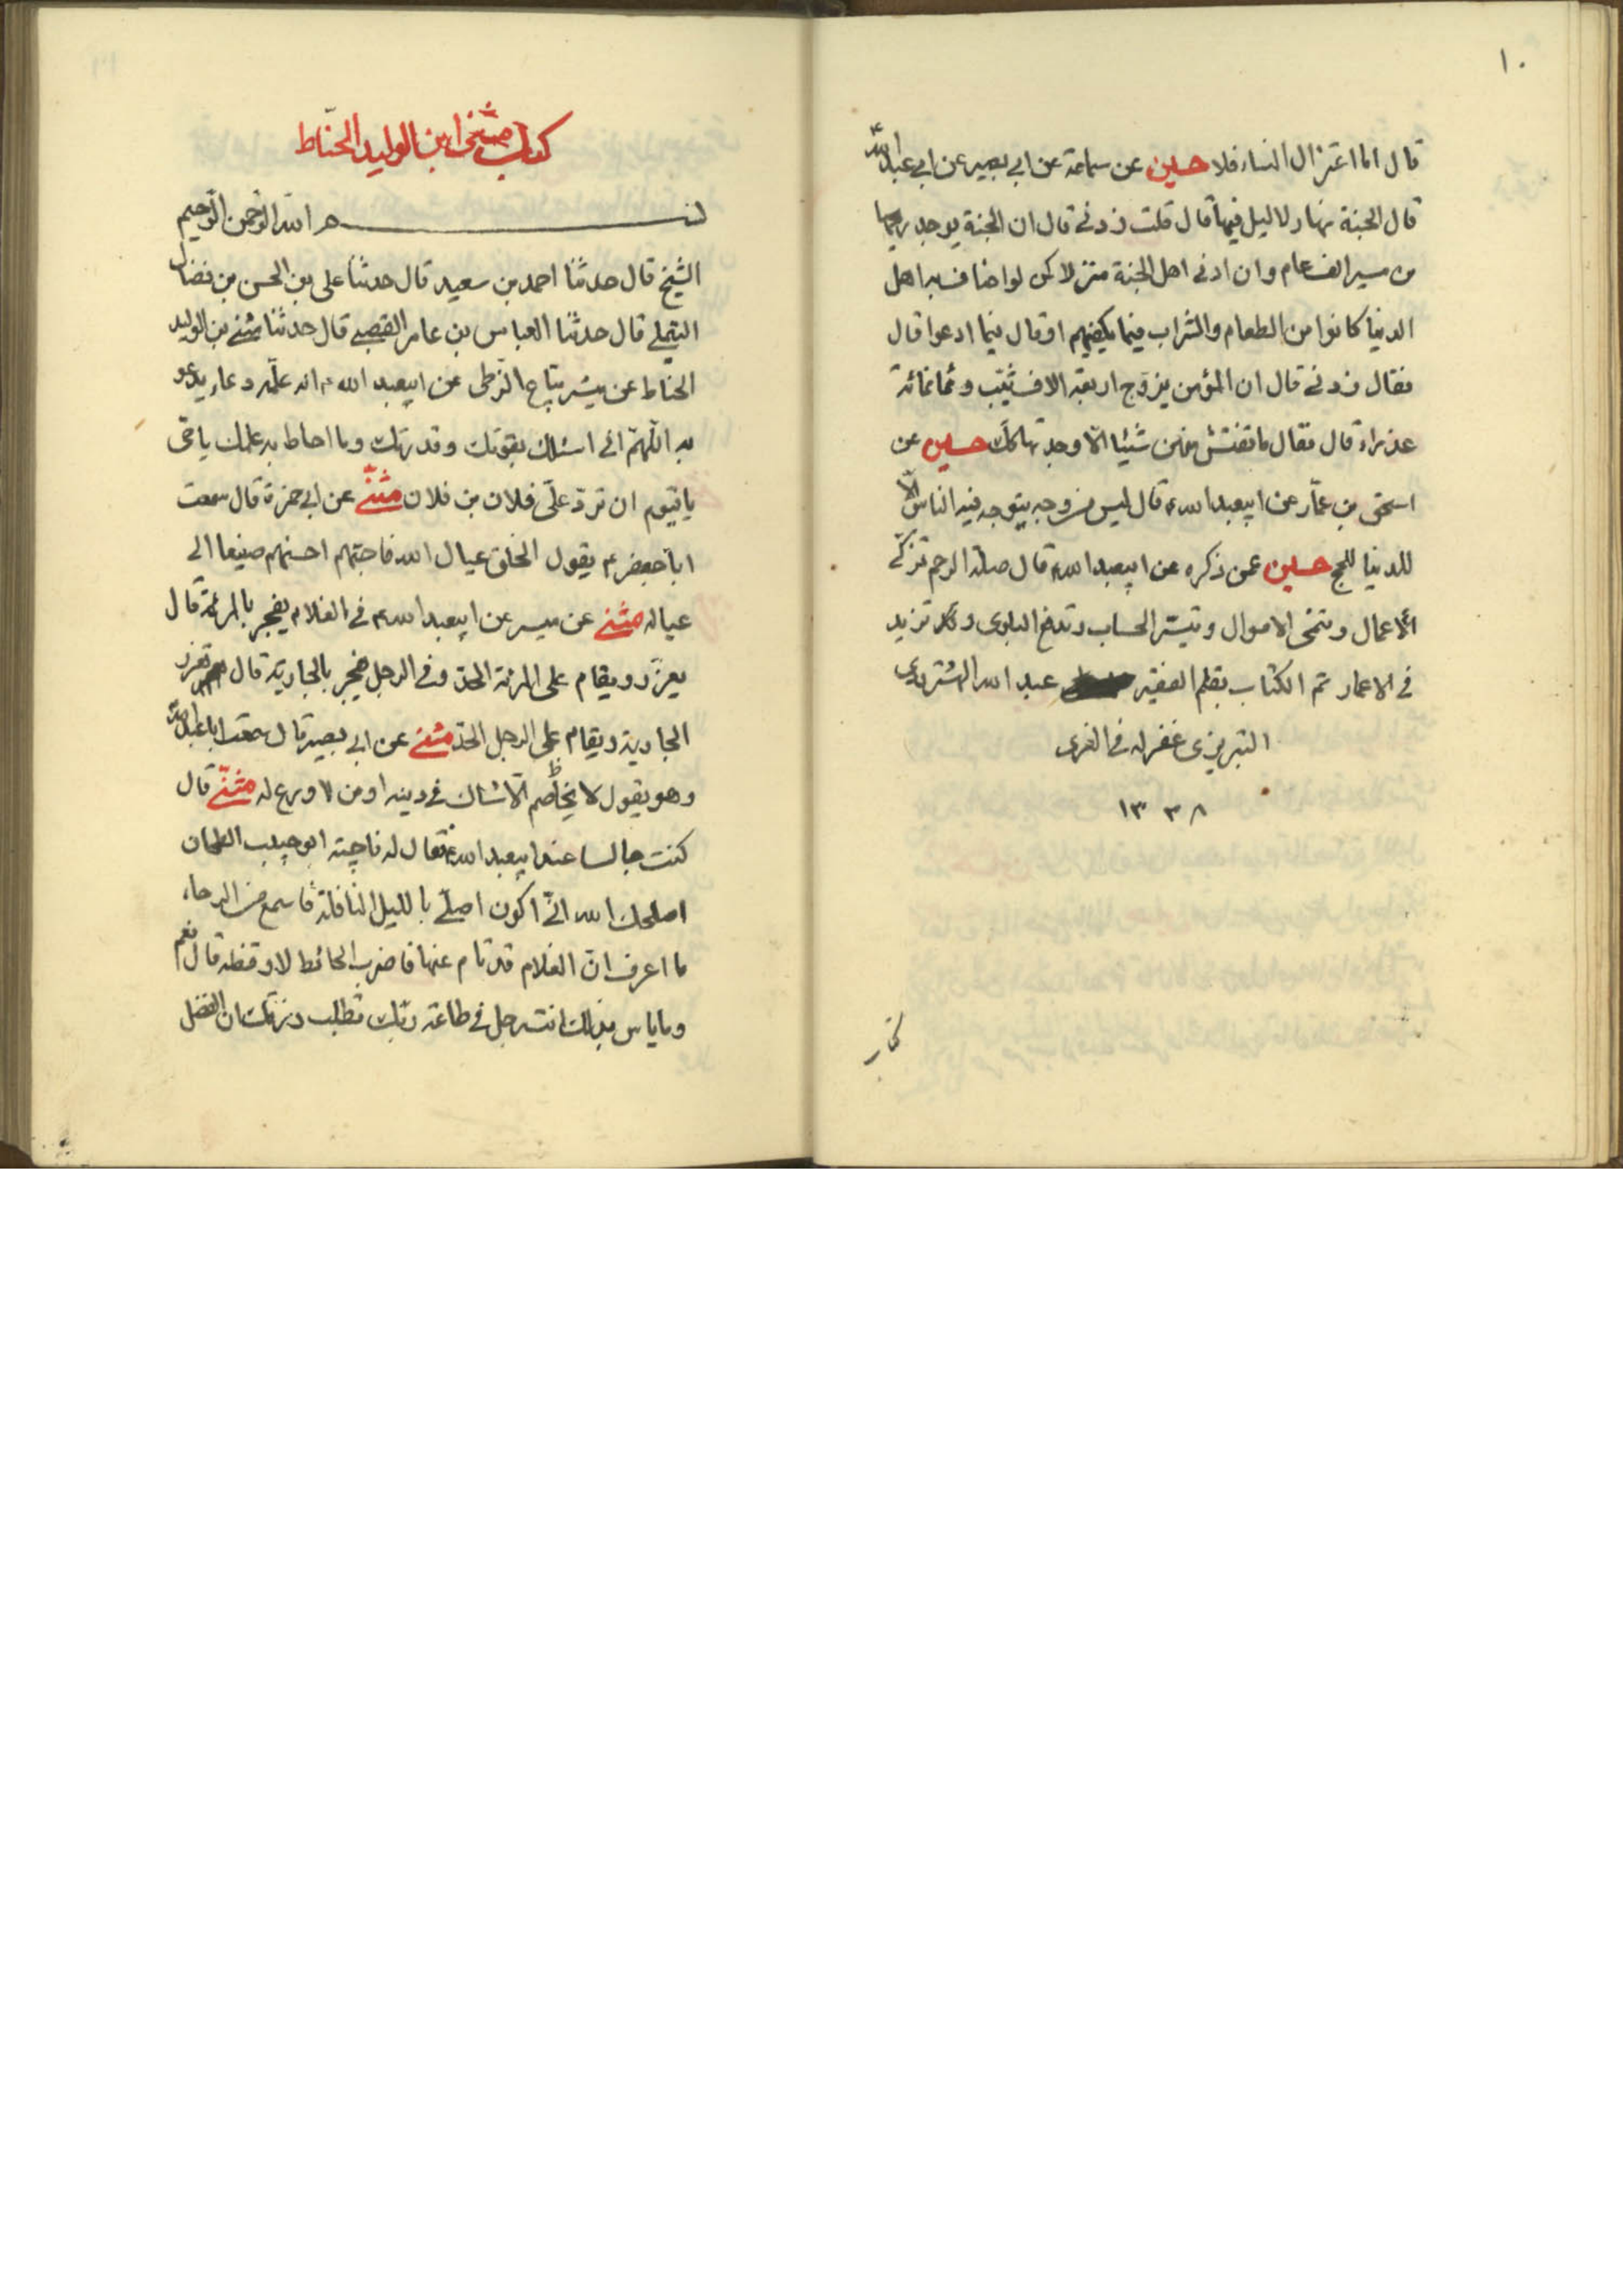 ١٠
قال اما اعتزال النساء فلا حسين عن سماعة عن ابي بصير عن ابي عبد الله ع
قال الجنة نهار لا ليل فيها قال قلت زدني قال ان الجنة يوجد ريحها
من مسير الف عام وان ادنى اهل الجنة منزلا كن لو اضاف به اهل
الدنيا كانوا من الطعام والشراب فيما يكفيهم او قال فيما ادعوا قال
فقال زدني قال ان المؤمن يزوج اربعة الاف ثيب وثمانمائة
عذراء قال فقال ما تفتش منهن شيئا الا وجدتها كك حسين عن
اسحق بن عمار عن ابيعبد الله ع قال ليس من وجه يتوجه فيه الناس الا
للدنيا للحج حسين عمن ذكره عن ابيعبد الله ع قال صلة الرحم تزكي
الاعمال وتنمى الاموال وتيسر الحساب وتدفع البلوى وتزيد
في الاعمار تم الكتاب بقلم الفقير عبد الله
التبريزى غفر له في الغرى
١٣٣٨
كتاب مثنى ابن الوليد الحنّاط
بسم الله الرحمن الرحيم
الشيخ قال حدثنا احمد بن سعيد قال حدثنا على بن الحسن بن فضال
التيملي قال حدثنا العباس بن عامر القصبي قال حدثنا مثنى بن الوليد
الحناط عن ميسر بياع الزطى عن ابيعبد الله ع انه علّمه دعاء يدعو
به اللهمّ اني اسئلك بقوتك وقدرتك وما احاط به علمك ياحى
ياقيوم ان تردّ علىّ فلان بن فلان مثنّى عن ابي حمزة قال سمعت
اباجعفر ع يقول الخلق عيال الله فاحبّهم احسنهم صنيعا الى
عياله مثنى عن ميسر عن ابيعبد الله ع في الغلام يفجر بالمرئة قال
يعزّر ويقام على المرئة الحد وفي الرجل يفجر بالجارية قال تعزر
الجارية ويقام على الرجل الحدّ مثنى عن ابي بصير قال سمعت ابا عبد الله ع
وهو يقول لا يخاصم الاّ شاك في دينه او من لا ورع له مثنّى قال
كنت جالسا عند ابيعبد الله ع فقال له ناجيه ابو حبيب الطحان
اصلحك الله انّي اكون اصلّي بالليل النافلة فاسمع من الرحاء
ما اعرف انّ الغلام قد نام عنها فاضرب الحائط لاوقظه قال نعم
وما باس بذلك انت رجل في طاعة ربّك تطلب رزقك ان الفضل